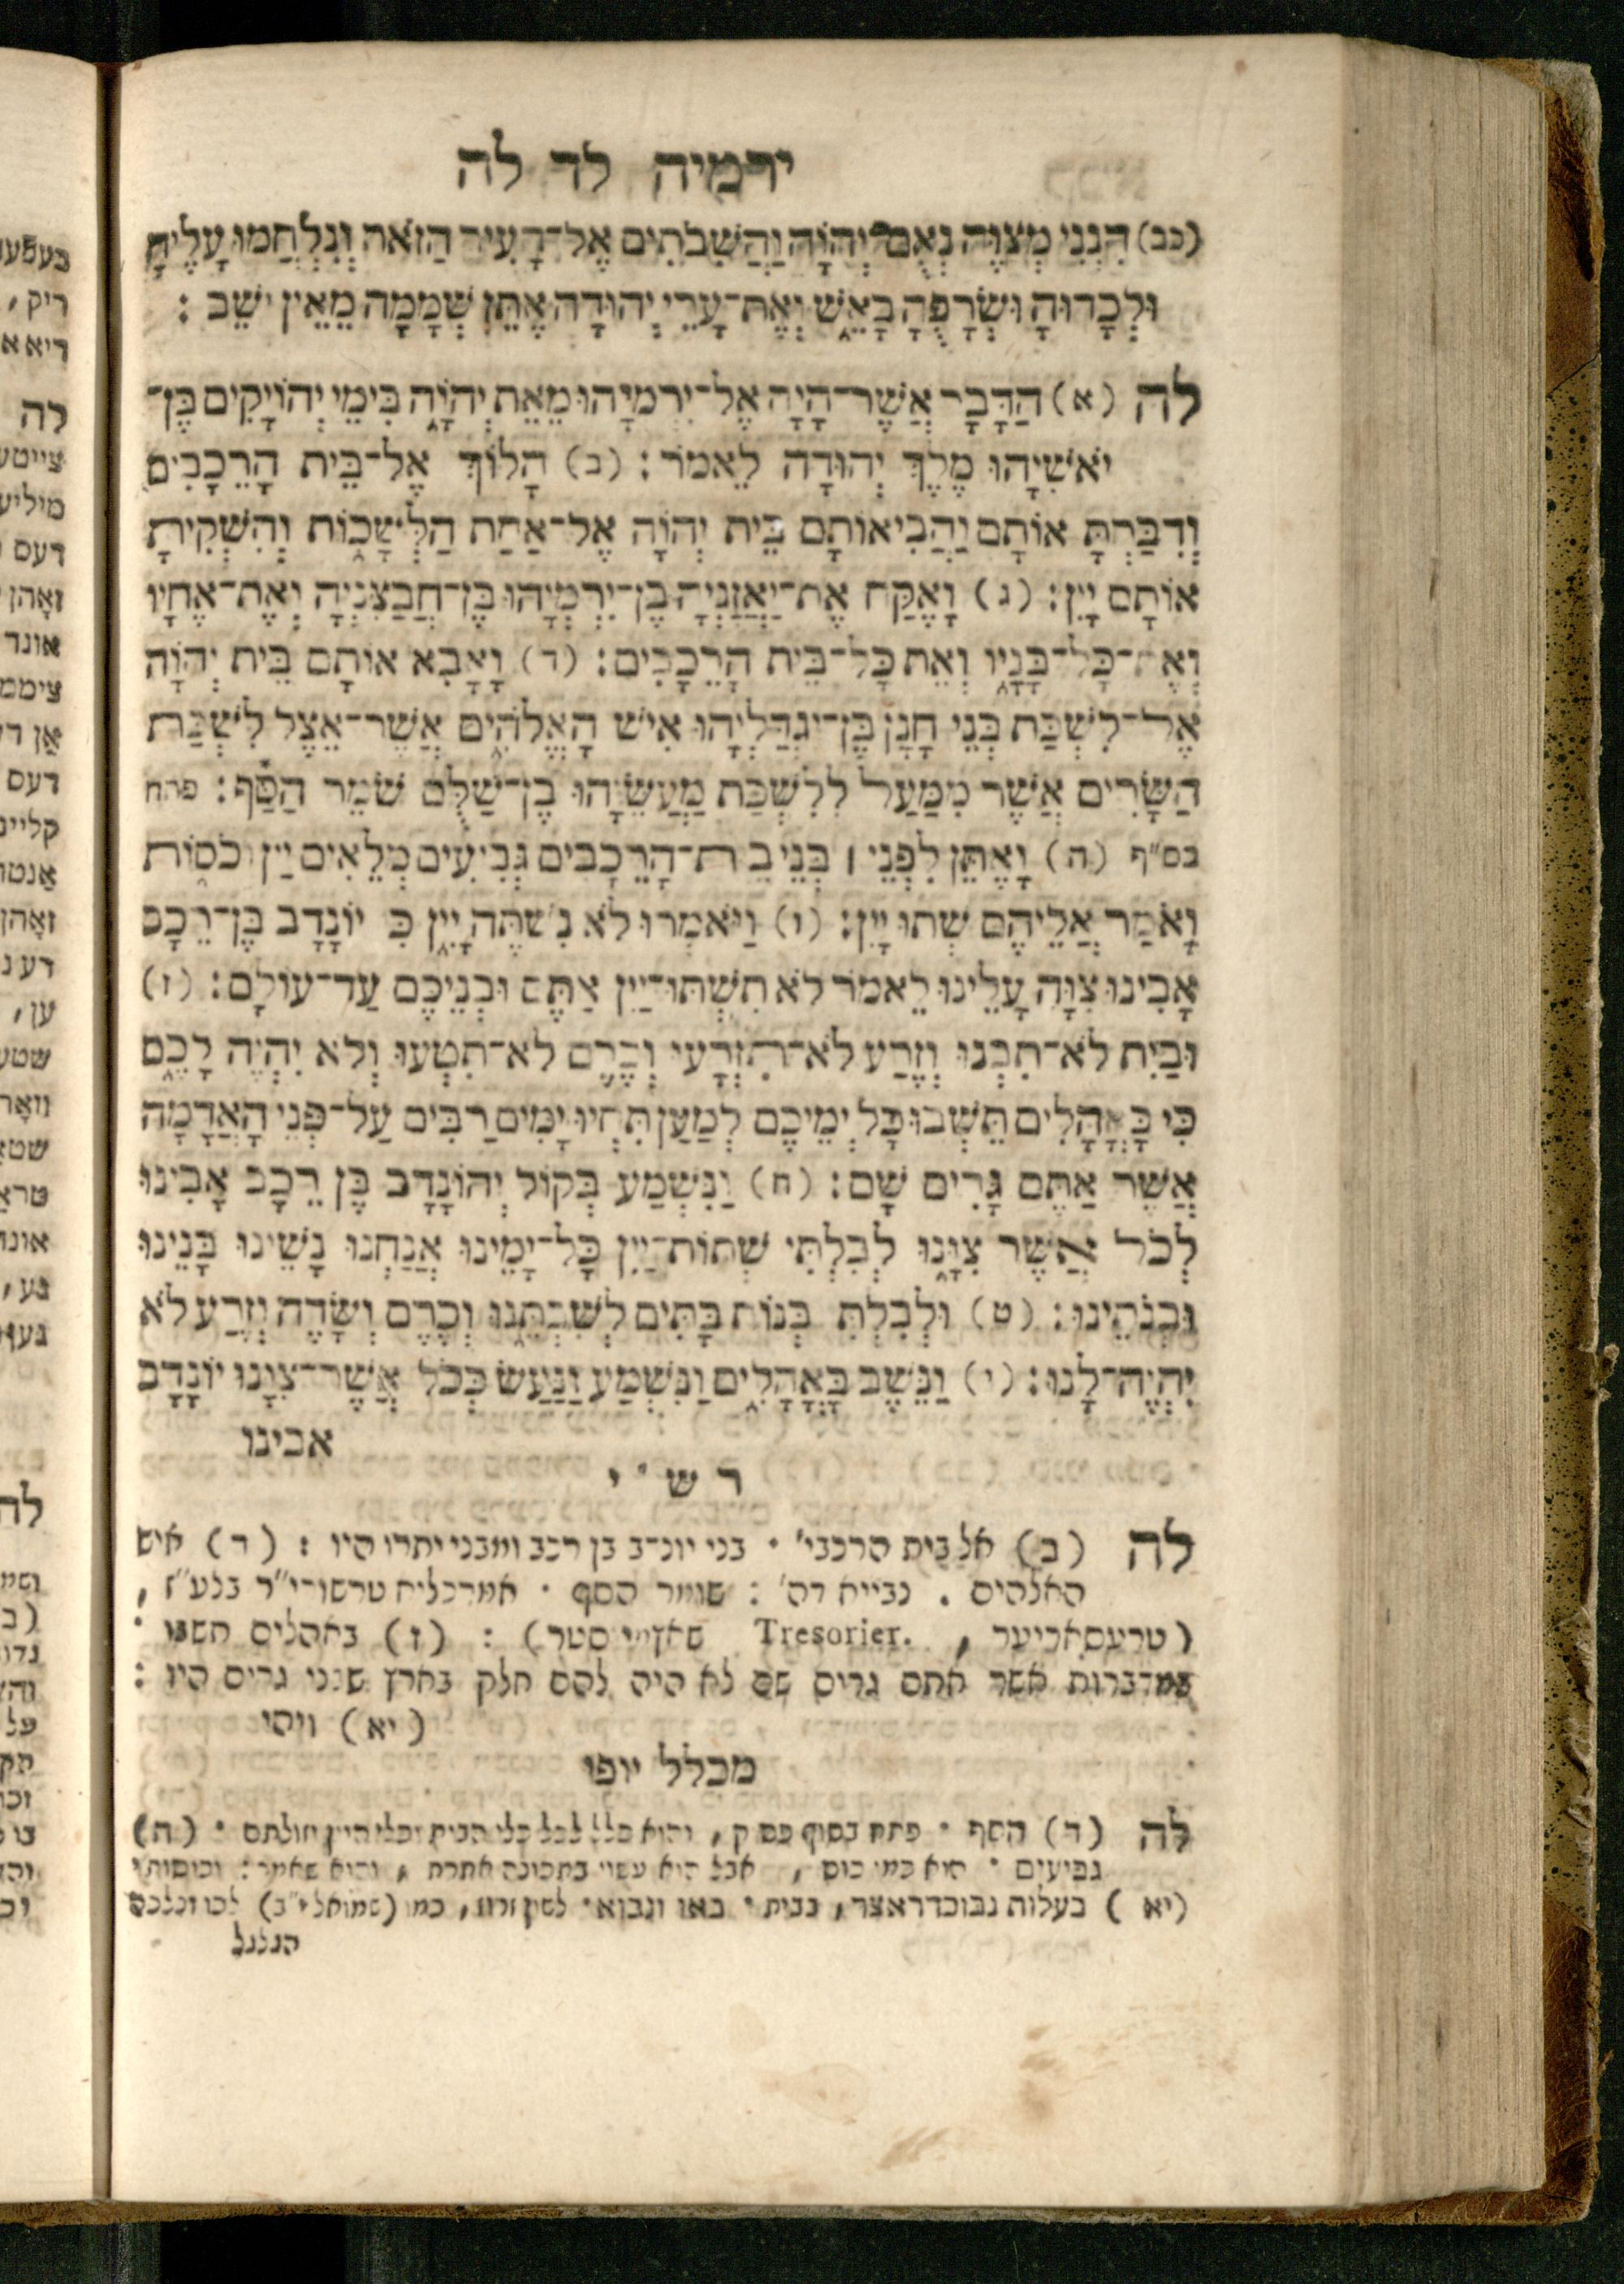 ירמיה לד לה
(כב) הִנְנִי מְצַוֶּה נְאֻם־יְהוָֹה וַהֲשִׁבֹתִים אֶל־הָעִיר הַזֹּאת וְנִלְחֲמוּ עָלֶיהָ
וּלְכָדוּהָ וּשְׂרָפֻהָ בָאֵשׁ וְאֶת־עָרֵי יְהוּדָה אֶתֵּן שְׁמָמָה מֵאֵין ישֵׁב :
לה (א) הַדָּבָר אֲשֶׁר־הָיָה אֶל־יִרְמְיָהוּ מֵאֵת יְהוָֹה בִּימֵי יְהוֹיָקִים בֶּן־
יֹאשִׁיָּהוּ מֶלֶךְ יְהוּדָה לֵאמֹר: (ב) הָלוֹךְ אֶל־בֵּית הָרֵכָבִים
וְדִבַּרְתָּ אוֹתָם וַהֲבִיאוֹתָם בֵּית יְהוָֹה אֶל־אַחַת הַלְּשָׁכוֹת וְהִשְׁקִיתָ
אוֹתָם יָיִן: (ג) וָאֶקַּח אֶת־יַאֲזַנְיָה בֶן־יִרְמְיָהוּ בֶּן־חֲבַצִּנְיָה וְאֶת־אֶחָיו
וְאֶת־כָּל־בָּנָיו וְאֵת כָּל־בֵּית הָרֵכָבִים: (ד) וָאָבִא אוֹתָם בֵּית יְהוָֹה
אֶל־לִשְׁכַּת בְּנֵי חָנָן בֶּן־יִגְדַּלְיָהוּ אִישׁ הָאֱלֹהִים אֲשֶׁר־אֵצֶל לִשְׁכַּת
הַשָּׂרִים אֲשֶׁר מִמַּעַל לְלִשְׁכַּת מַעֲשֵׂיָהוּ בֶן־שַׁלֻּם שֹׁמֵר הַסַּף: פתח
בס״ף (ה) וָאֶתֵּן לִפְנֵי ׀ בְּנֵי בֵית־הָרֵכָבִים גְּבִעִים מְלֵאִים יַיִן וְכֹסוֹת
וָאֹמַר אֲלֵיהֶם שְׁתוּ יָיִן: (ו) וַיֹּאמְרוּ לֹא נִשְׁתֶּה יָּיִן כִּי יוֹנָדָב בֶּן־רֵכָב
אָבִינוּ צִוָּה עָלֵינוּ לֵאמֹר לֹא תִשְׁתּוּ־יַיִן אַתֶּם וּבְנֵיכֶם עַד־עוֹלָם: (ז)
וּבַיִת לֹא־תִבְנוּ וְזֶרַע לֹא־תִזְרָעוּ וְכֶרֶם לֹא־תִטְּעוּ וְלֹא יִהְיֶה לָכֶם
כִּי בָּאֳהָלִים תֵּשְׁבוּ כָּל יְמֵיכֶם לְמַעַן תִּחְיוּ יָמִים רַבִּים עַל־פְּנֵי הָאֲדָמָה
אֲשֶׁר אַתֶּם גָּרִים שָׁם: (ח) וַנִּשְׁמַע בְּקוֹל יְהוֹנָדָב בֶּן רֵכָב אָבִינוּ
לְכֹל אֲשֶׁר צִוָּנוּ לְבִלְתִּי שְׁתוֹת־יַיִן כָּל־יָמֵינוּ אֲנַחְנוּ נָשֵׁינוּ בָּנֵינוּ
וּבְנֹתֵינוּ: (ט) וּלְבִלְתִּי בְּנוֹת בָּתִּים לְשִׁבְתֵּנוּ וְכֶרֶם וְשָׂדֶה וָזֶרַע לֹא
יִהְיֶה־לָּנוּ: (י) וַנֵּשֶׁב בָּאֳהָלִים וַנִּשְׁמַע וַנַּעַשׂ כְּכֹל אֲשֶׁר־צִוָּנוּ יוֹנָדָב
אבינו
ר ש ״ י
לה (ב) אל בית הרכבי׳ · בני יונדב בן רכב ומבני יתרו היו : (ד) איש
האלהים . נבייא דה׳ : שומר הסף · אמרכליא טרשורי״ר בלע״ז ,
(טרעסאריער , Tresorier. שאץ סטר) : (ז) באהלים תשבו ·
במדברות אשר אתם גרים שם לא היה להם חלק בארץ שבני גרים היו :
(יא) ויהי
מכלל יופי
לה (ד) הסף · פתח בסוף פסוק , והוא כלל לכל כלי הבית וכלי היין חולתם · (ה)
גביעים · הוא כמו כוס , אבל הוא עשוי בתכונה אחרת , והוא שאמר: וכוסות ·
(יא) בעלות נבוכדראצר , בבית · באו ונבוא · לשון זרוז , כמו (שמואל י״ב) לכו ונלכה
הגלגל
לה